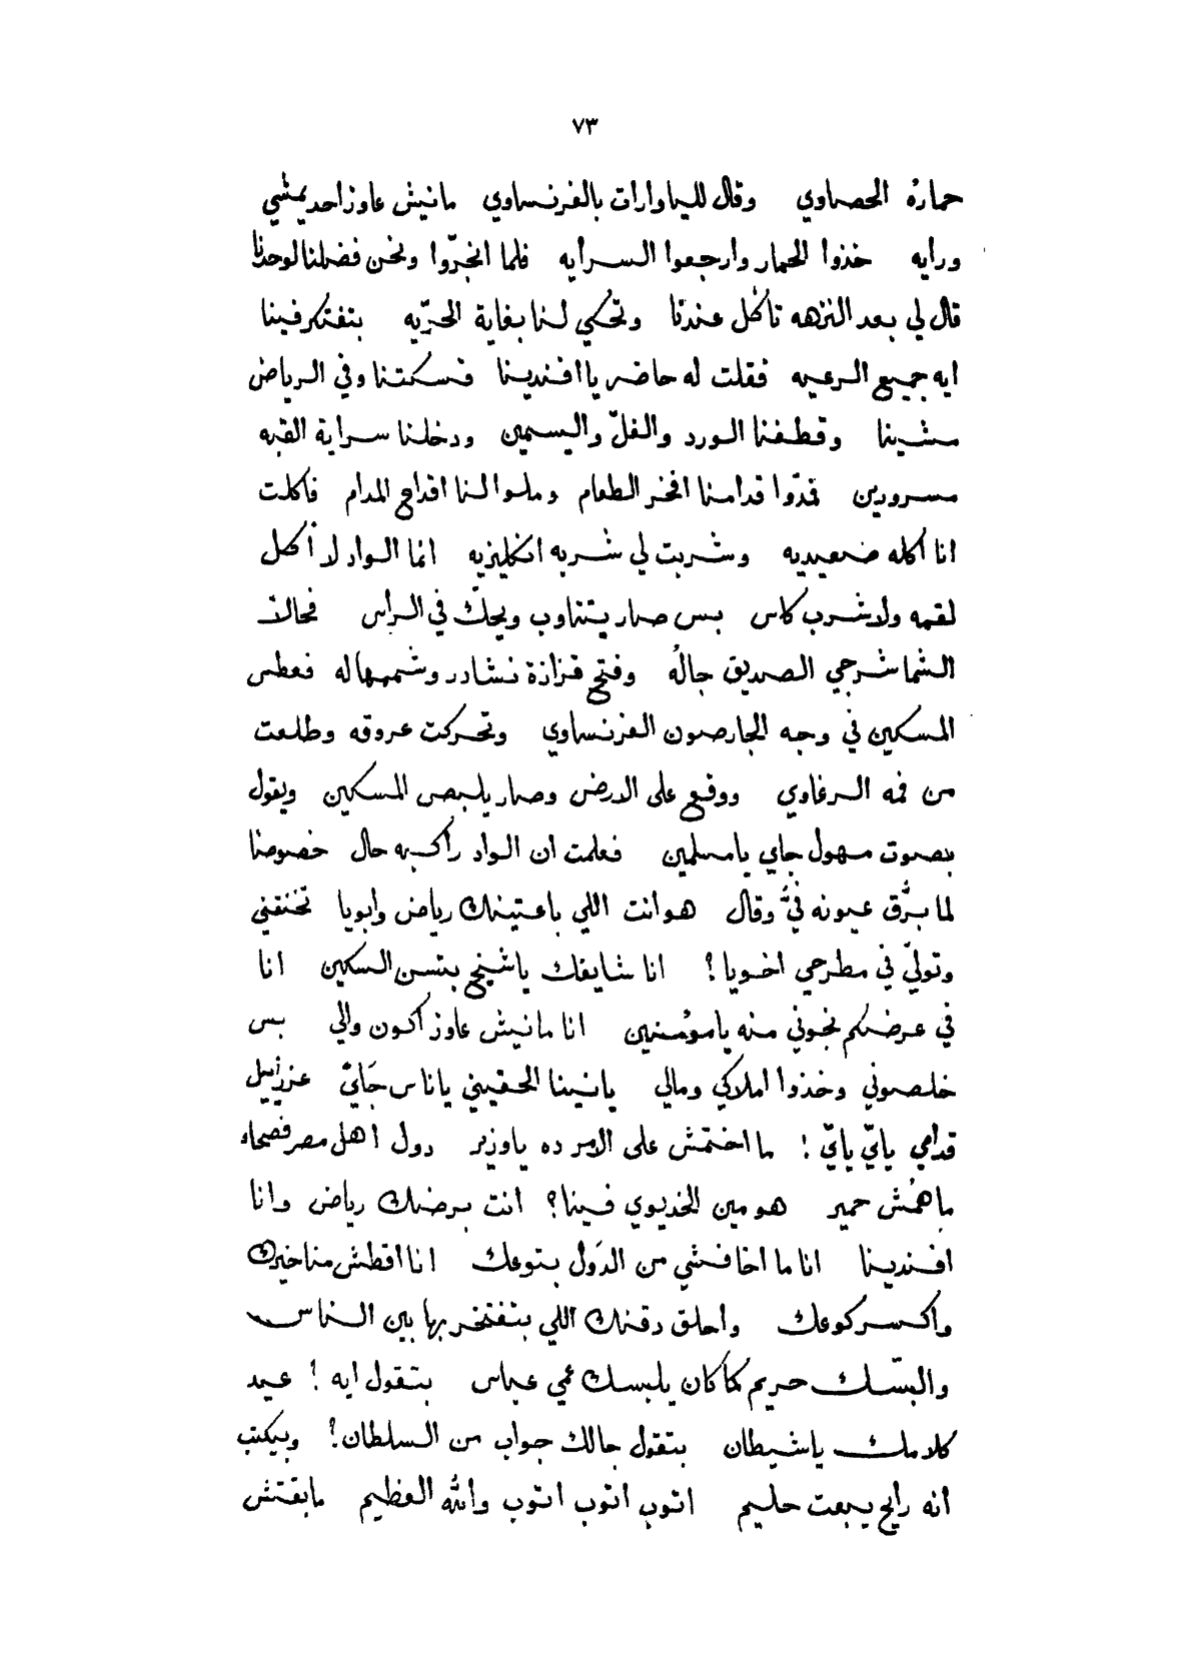 ٧٣
حمارهُ الحصاوي وقال للياوارات بالفرنساوي مانيش عاوز احد يمشي
ورايه خذوا الحمار وارجعوا السرايه فلما انجرّوا ونحن فضلنا لوحدنا
قال لي بعد النزهه تاكل عندنا وتحكي لنا بغاية الحرّيه بتفتكر فينا
ايه جميع الرعيه فقلت له حاضر يا افندينا فسكتنا وفي الرياض
مشينا وقطفنا الورد والفلّ واليسمين ودخلنا سراية القبه
مسرورين فمدّوا قدامنا افخر الطعام وملوا لنا اقداح المدام فاكلت
انا اكله صعيديه وشربت لي شربه انكليزيه انما الواد لا أكل
لقمه ولا شرب كاس بس صار يتناوب ويحكّ في الراس فحالاً
الشماشرجي الصديق جالُه وفتح قزازة نشادر وشممهاله فعطس
المسكين في وجه الجارصون الفرنساوي وتحركت عروقه وطلعت
من فمه الرغاوي ووقع على الارض وصار يلبص المسكين ويقول
بصوت مهول جاي يا مسلمين فعلمت ان الواد راكبه حال خصوصاً
لما برَّق عيونه فيَّ وقال هو انت اللي باعتينك رياض وابويا تخنقني
وتولّي في مطرحي اخويا؟ انا شايفك ياشيخ بتسن السكين انا
في عرضكم نجوني منه يا مؤمنين انا مانيش عاوز أكون والي بس
خلصوني وخذوا املاكي ومالي يا نينا الحقيني يا ناس جَايّ عزرائيل
قدامي يايّ يايّ! ما اختمش على الامر ده يا وزير دول اهل مصر فصحاء
ماهُمْش حمير هو مين الخديوي فينا؟ انت برضك رياض وانا
افندينا انا ما اخافشي من الدَول بتوعك انا اقطش مناخيرك
واكسر كوعك واحلق دقنك اللي بتفتخر بها بين الناس
والبسّك حريم كما كان يلبسك عمي عباس بتقول ايه! عيد
كلامك ياشيطان بتقول جالك جواب من السلطان؟ وبيكتب
انه رايح يبعت حليم اتوب اتوب اتوب والله العظيم مابقتش